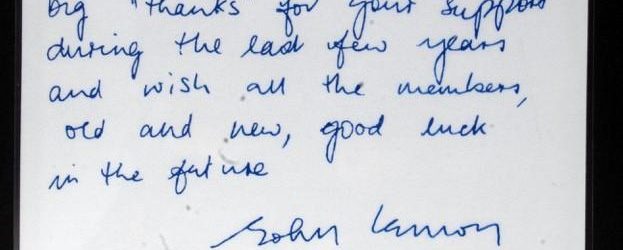 big "thanks" for your support
during the last few years
and wish all the members,
old and new, good luck
in the future
John Lennon